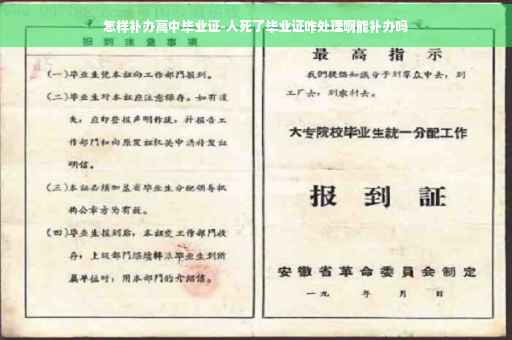 怎样补办高中毕业证-人死了毕业证咋处理啊能补办吗
报到注意事项
(一)毕业生凭本证向工作部门报到。
(二)毕业生对本证应注意保存。如有遗
失，应即登报声明作废，并报告工
作部门和向原发证机关申请补发证
明信。
(三)本证必须加盖省毕业生分配领导机
构公章方为有效。
(四)毕业生报到后，本证交工作部门收
存；上级部门继续转派毕业生到所
属单位时，用本部门的介绍信。
最高指示
我们提倡知识分子到群众中去，到
工厂去，到农村去。
大专院校毕业生统一分配工作
报到证
安徽省革命委员会制定
一九 年 月 日